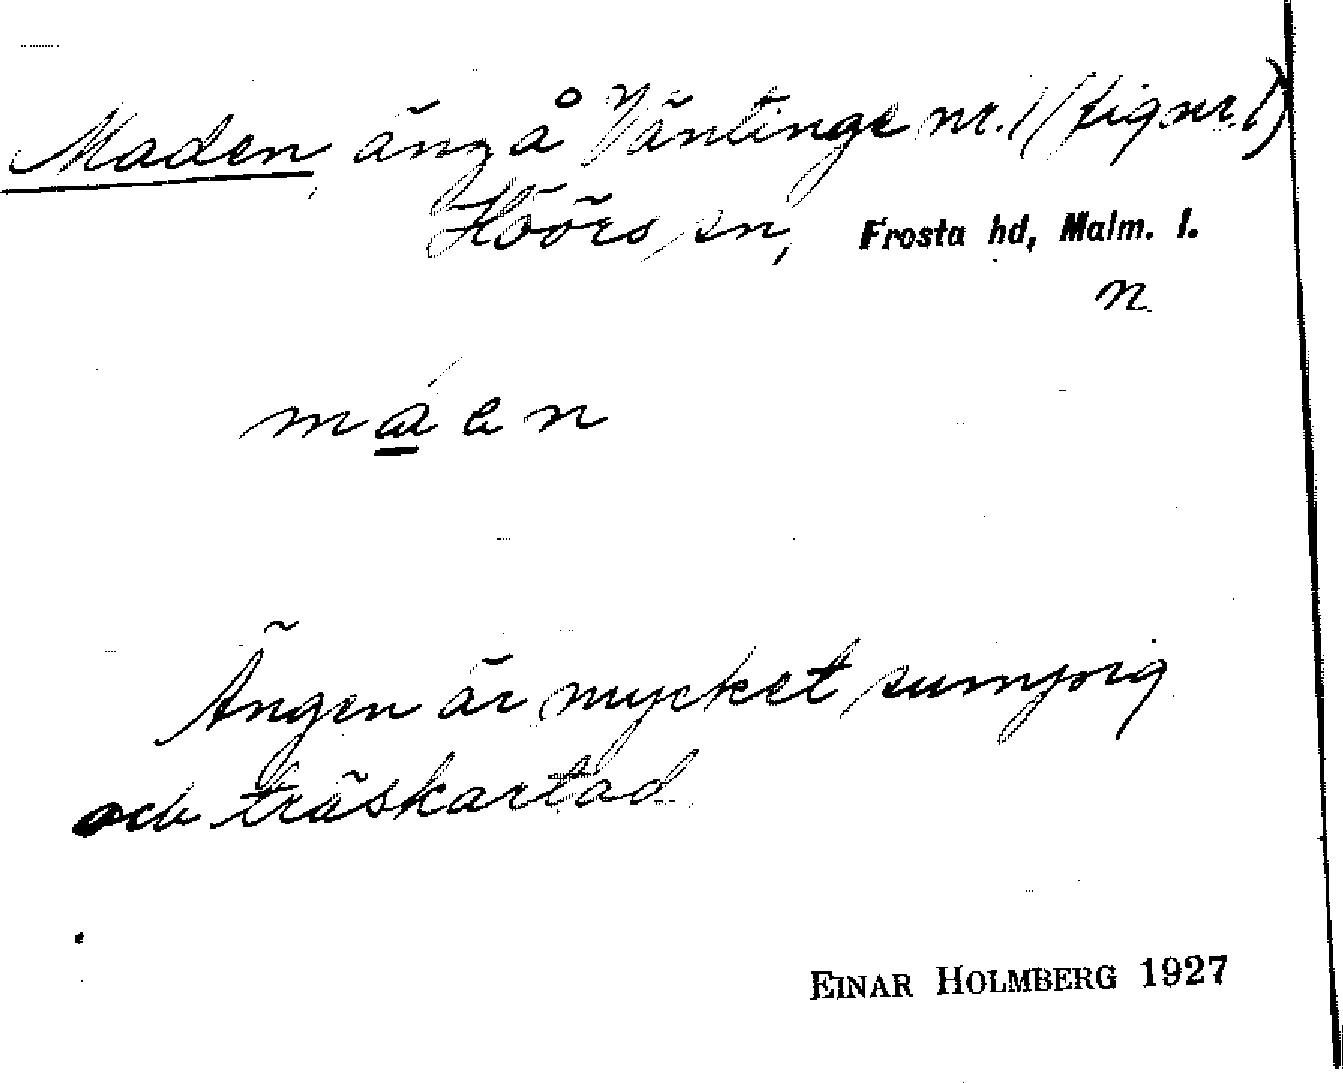 Maden, äng å Väntinge nr. 1 (fig nr. 1)
Höörs sn, Frosta hd, Malm. l.
n
máen
Ängen är mycket sumpig
och träskartad
EINAR HOLMBERG 1927